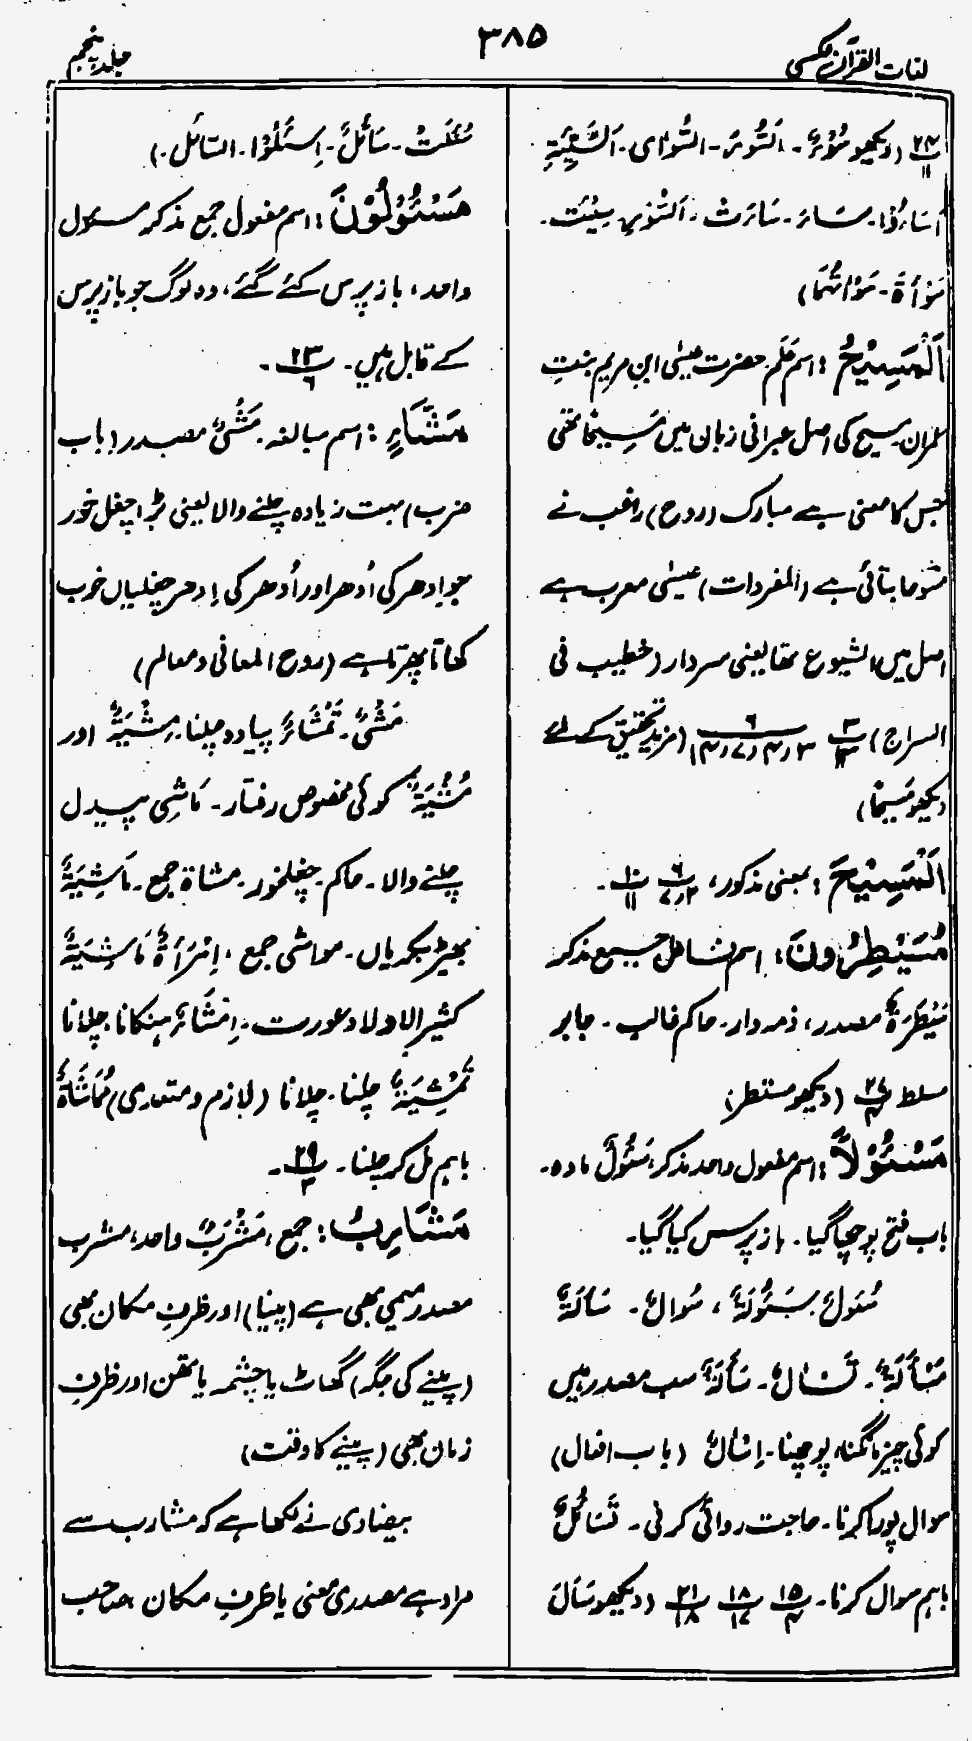 لغات القرآن عکسی
۳۸۵
جلد پنجم
۲۴/۱۱ (دیکھو سُوْءٌ ۔ اَلسُّوْءَ ۔ السُّوْاٰی ۔ اَلسَّیِّئَۃِ
اَسَاءُوْا ۔ سَاءَ ۔ سَاءَتْ ۔ سِیْئَتْ ۔
سَوْأۃَ ۔ سَوْاٰتُہُمَا)
اَلْمَسِیْحُ : اسم عَلَم حضرت عیسٰی ابنِ مریم بنتِ
عمران مسیح کی اصل عبرانی زبان میں مَسِیْحًا تھی
جس کا معنی ہے مبارک (روح) راغب نے
مشوحا بتائی ہے (المفردات) عیسٰی معرب ہے
اصل میں الشیوع تھا یعنی سردار (خطیب فی
السراج) ۳/۱۳ ۶/۳ و ۴ و ۷ و ۱۴ (مزید تحقیق کے لئے
دیکھو مَسِیْحًا)
اَلْمَسِیْحَ : بمعنی مذکور، ۶/۲ و ۷ ۱۰/۱۱ ۔
مُسَیْطِرُوْنَ : اسم فاعل جمع مذکر
سَیْطَرَۃٌ مصدر، ذمہ دار ۔ حاکم غالب ۔ جابر
مسلط ۲۷/۴ (دیکھو مستطر)
مَسْئُوْلًا : اسم مفعول واحد مذکر، سُئُوْلٌ مادہ ۔
باب فتح پوچھا گیا ۔ باز پرس کیا گیا ۔
سُئولٌ سَئُوْلَۃٌ ، سُوالٌ ۔ سَاٰلَۃٌ
مَسْأَلَۃٌ ۔ تَسْاٰلٌ ۔ سَأْلَۃٌ سب مصدر ہیں
کوئی چیز مانگنا، پوچھنا ۔ اِسْاٰلٌ (باب افعال)
سوال پورا کرنا ۔ حاجت روائی کرنی ۔ تَسَائُلٌ
باہم سوال کرنا ۔ ۱۵/۴ ۱۸/۱۷ ۲۱/۱۸ (دیکھو سَأَلَ
سُئِلَتْ ۔ سَائِلٌ ۔ اِسْئَلُوْا ۔ السائل ۔)
مَسْئُوْلُوْنَ : اسم مفعول جمع مذکر مسئول
واحد، باز پرس کئے گئے، وہ لوگ جو باز پرس
کے قابل ہیں ۔ ۲۳/۶ ۔
مَشَّاءٍ : اسم مبالغہ، مَشْیٌ مصدر (باب
ضرب) بہت زیادہ چلنے والا یعنی بڑا چغل خور
جو اِدھر کی اُدھر اور اُدھر کی اِدھر چغلیاں خوب
کھاتا پھرتا ہے (روح المعانی و معالم)
مَشْیٌ ۔ تَمْشَاءٌ پیادہ چلنا ۔ مِشْیَۃٌ اور
مُشْیَۃٌ کوئی مخصوص رفتار ۔ مَاشِی پیدل
چلنے والا ۔ حاکم ۔ چغلخور ۔ مشاۃ جمع ۔ مَاشِیَۃٌ
بھیڑ بکریاں ۔ مواشی جمع ، اِمْرَأَۃٌ مَاشِیَۃٌ
کثیر الاولاد عورت ۔ اِمْشَاءٌ ہنکانا، چلانا
تَمْشِیَۃٌ چلنا ۔ چلانا (لازم و متعدی) مُمَاشَاۃٌ
باہم مل کر چلنا ۔ ۲۹/۳ ۔
مَشَارِبُ : جمع ، مَشْرَبٌ واحد، مشرب
مصدر میمی بھی ہے (پینا) اور ظرفِ مکان بھی
(پینے کی جگہ) گھاٹ یا چشمہ یا تھن اور ظرفِ
زمان بھی (پینے کا وقت)
بیضاوی نے لکھا ہے کہ مشارب سے
مراد ہے مصدری معنی یا ظرفِ مکان، صاحب